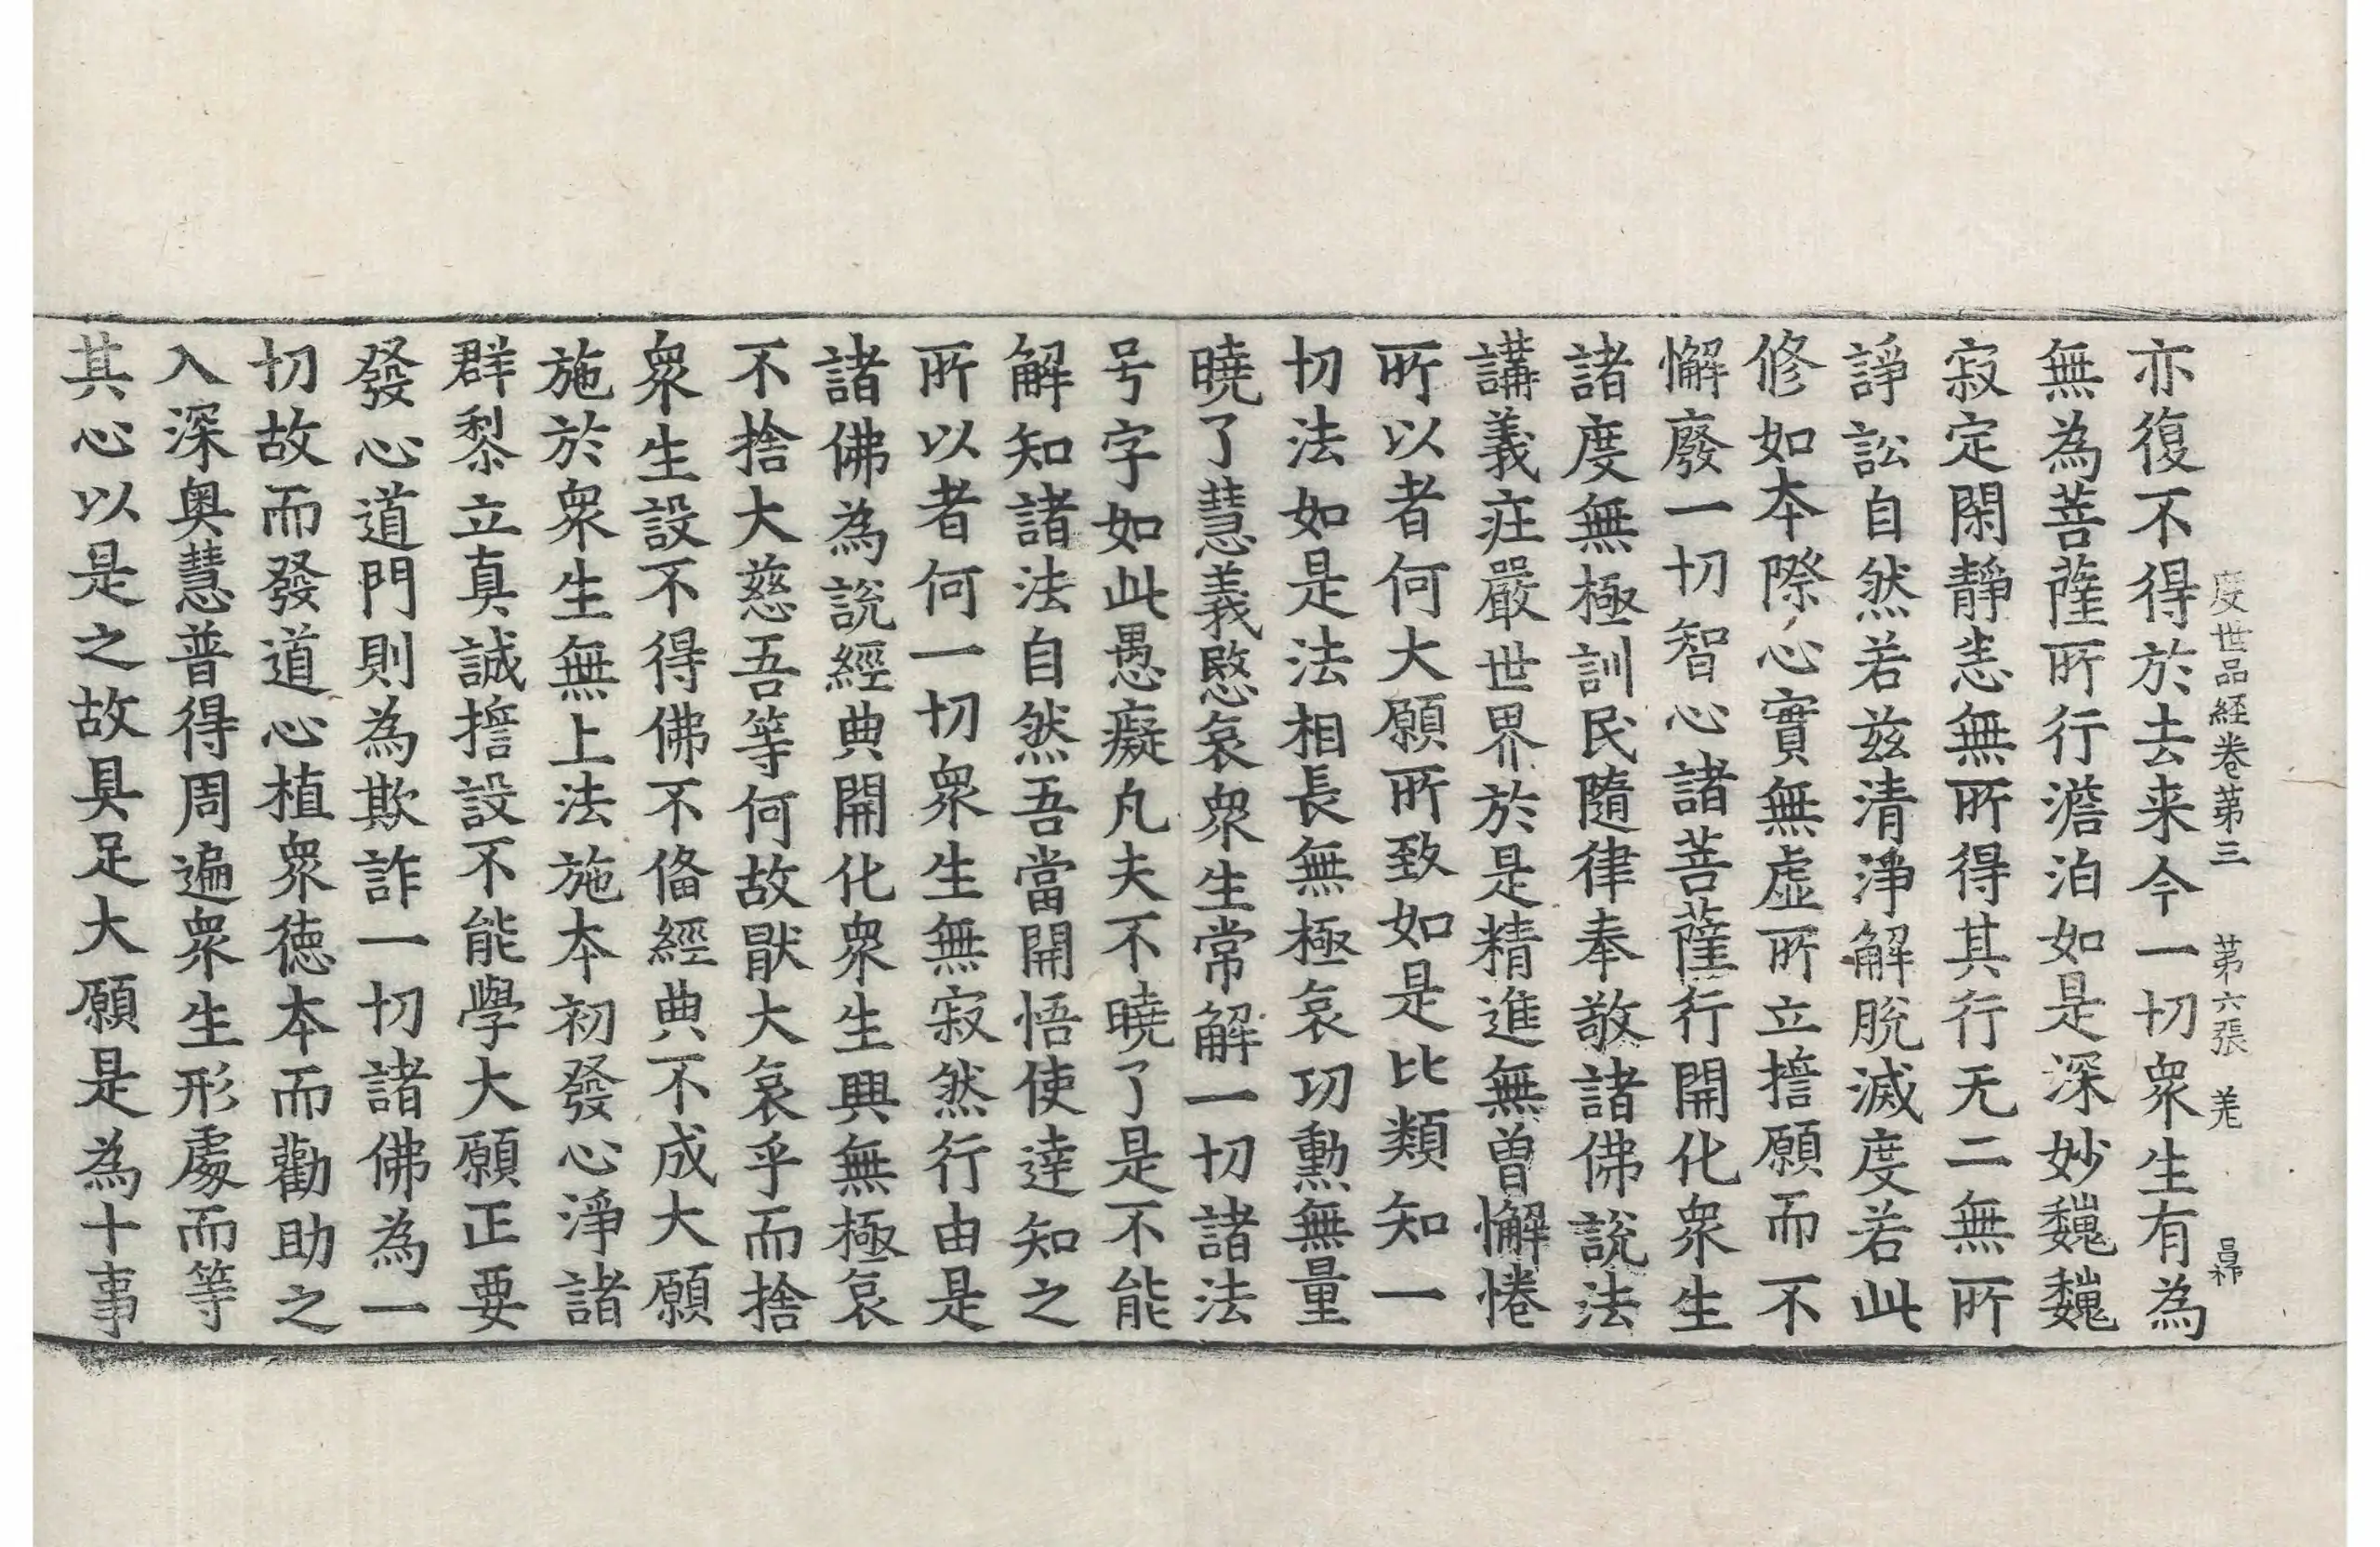 度世品経卷苐三 苐六張 羌 昌
亦復不得於去来今一切衆生有為
無為菩薩所行澹泊如是深妙巍巍
寂定閑靜恚無所得其行无二無所
諍訟自然若兹清淨解脫滅度若此
修如本際心實無虛所立擔願而不
懈廢一切智心諸菩薩行開化衆生
諸度無極訓民隨律奉敬諸佛說法
講義疘嚴世界於是精進無曽懈惓
所以者何大願所致如是比類知一
切法如是法相長無極哀功勲無量
曉了慧義愍哀衆生常解一切諸法
号字如此愚癡凡夫不曉了是不能
解知諸法自然吾當開悟使達知之
所以者何一切衆生無寂然行由是
諸佛為説經典開化衆生興無極哀
不捨大慈吾等何故猒大哀乎而捨
衆生設不得佛不俻經典不成大願
施於衆生無上法施本初發心淨諸
群黎立真誠擔設不能學大願正要
發心道門則為欺詐一切諸佛為一
切故而發道心植衆徳本而勸助之
入深奥慧普得周遍衆生形處而等
其心以是之故具足大願是為十事